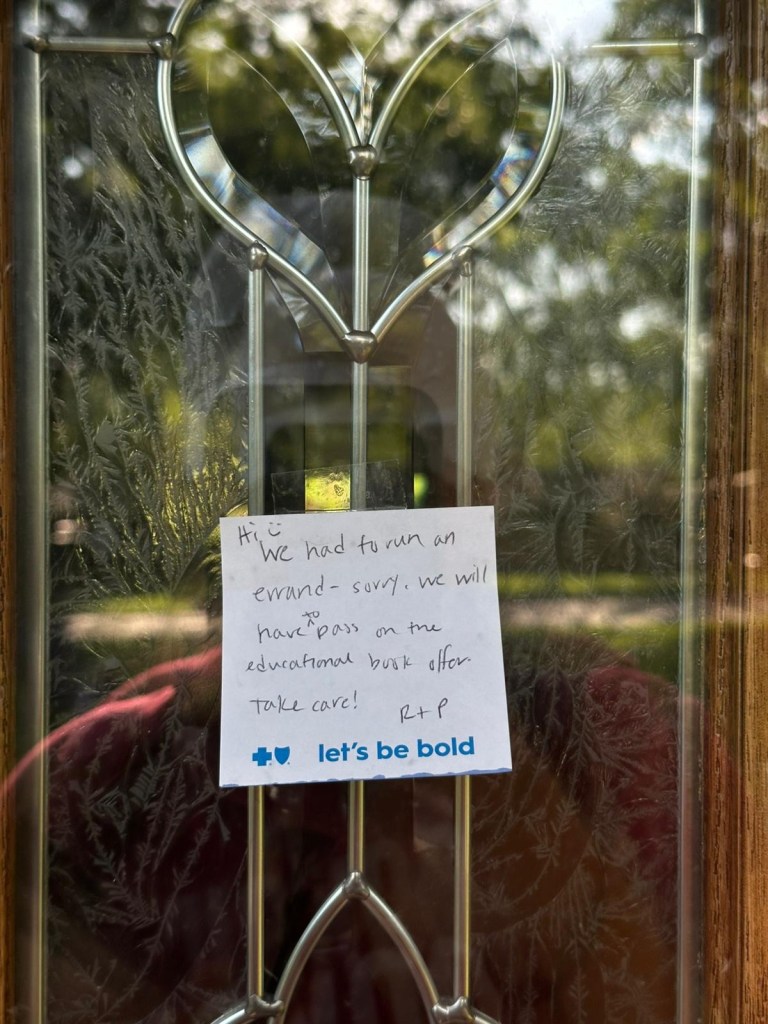 Hi, :)
We had to run an
errand - sorry. We will
have to pass on the
educational book offer.
Take care!
R + P
let's be bold